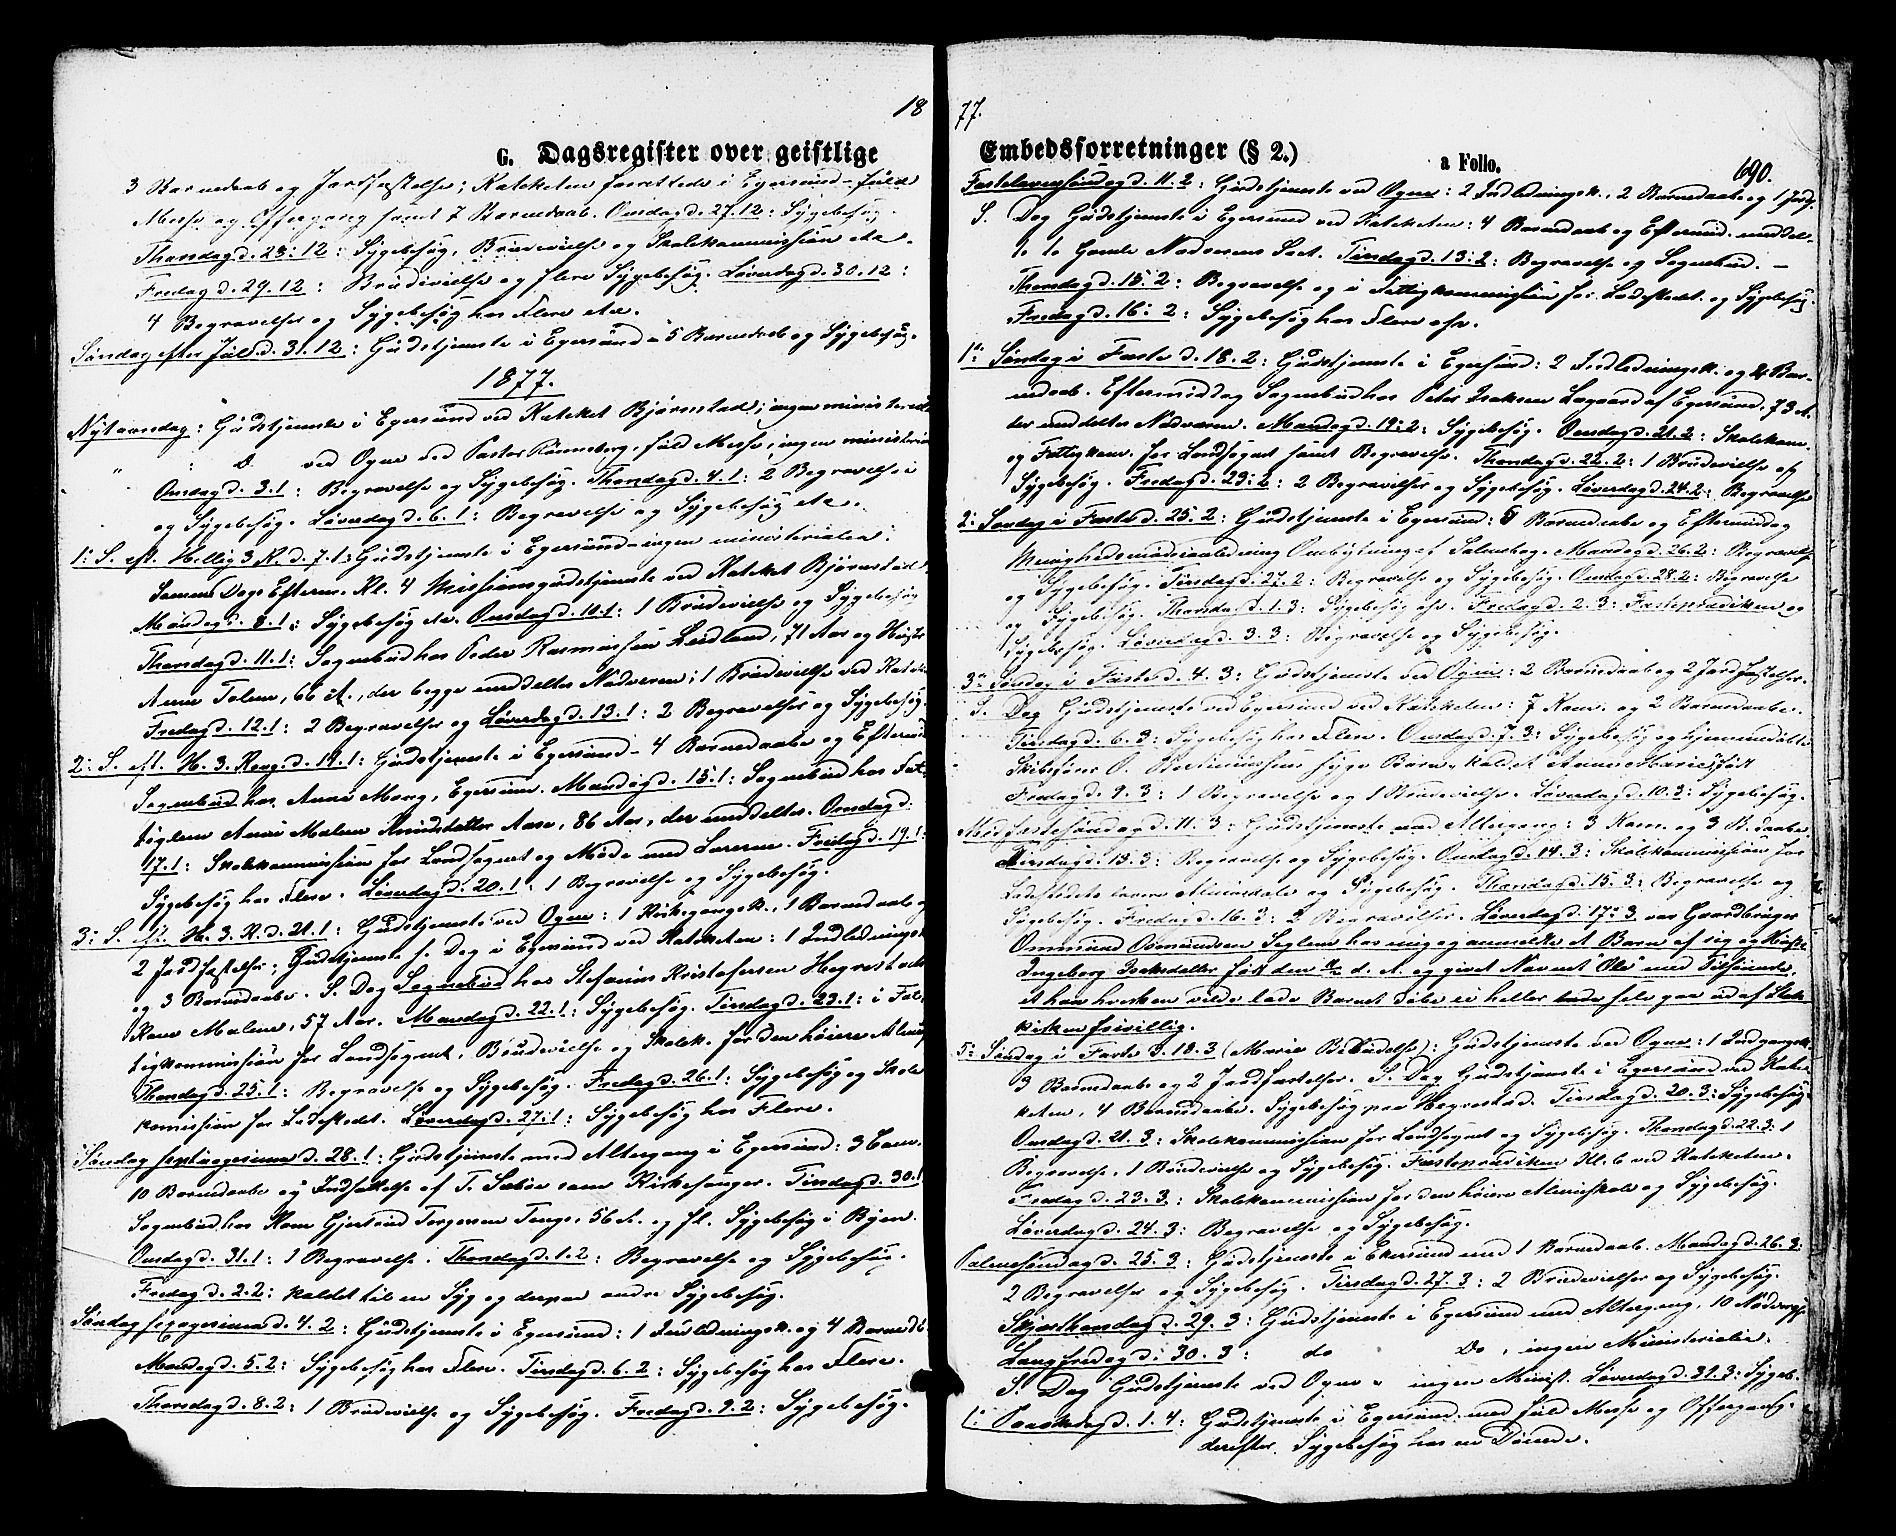 18
G. Dagsregister over geistlige
3 Barnedaab og Jordfæstelse; Kateketen forrettede i Egersund - Juld
Messe og Offergang samt 7 Barnedaab. Onsdag d. 27.12: Sygebesøg.
Thorsdag d. 28.12: Sygebesøg, Brudevielse og Skolekommission etc.
Fredag d. 29.12: Brudevielse og flere Sygebesøg. Løverdag d. 30.12:
4 Begravelser og Sygebesøg hos Flere etc.
Søndag efter Juul d. 31.12: Gudstjeneste i Egersund - 5 Barnedaab og Sygebesøg.
1877.
Nytaarsdag: Gudstjeneste i Egersund ved Kateket Bjørnstad; ingen ministeriel
" : D. ved Ogne ved Pastor fuld Messe, ingen ministeriel
Onsdag d. 3.1: Begravelse og Sygebesøg. Thorsdag d. 4.1: 2 Begravelser
og Sygebesøg. Løverdag d. 6.1: Begravelse og Sygebesøg etc.
1: S. eft. Hellig 3 K. d. 7.1: Gudstjeneste i Egersund - ingen ministerialier:
Samme Dags Efterm. Kl. 4 Missionsgudstjeneste ved Kateket Bjørnstad.
Mandag d. 8.1: Sygebesøg etc. Onsdag d. 10.1: 1 Brudevielse og Sygebesøg
Thorsdag d. 11.1: Sognebud hos Peder Rasmussen Leidland, 71 Aar og Hustru
Anne Tolene, 66 A., der begge meddeltes Nadveren; 1 Brudevielse ved Kateket
Fredag d. 12.1: 2 Begravelser og Løverdag d. 13.1: 2 Begravelser og Sygebesøg.
2: S. eft. H. 3. Kong. d. 14.1: Gudstjeneste i Egersund - 4 Barnedaabe og Eftermid
Sognebud hos Anne Mong, Egersund. Mandag d. 15.1: Sognebud hos Fat-
tiglem Anne Malene Amundsdatter Aase, 86 Aar, der meddeltes. Onsdag d.
17.1: Skolekommission for Landsognet og Møde med Lærerne. Fredag d. 19.1:
Sygebesøg hos Flere. Løverdag d. 20.1: 1 Begravelse og Sygebesøg.
3: S. eft. H. 3. K. d. 21.1: Gudstjeneste ved Ogne: 1 Kirkegangsk., 1 Barnedaab og
2 Jordfæstelser; Gudstjeneste s. Dag i Egersund ved Kateketen: 1 Indledningsk
og 3 Barnedaabe. S. Dag Sognebud hos Stefanus Kristofersen Hegrestads
Kone Malene, 57 Aar. Mandag d. 22.1: Sygebesøg. Tirsdag d. 23.1: i Fat-
tigkommission for Landsognet, Brudevielse og Skolek. for den høiere Almue
Thorsdag d. 25.1: Begravelse og Sygebesøg. Fredag d. 26.1: Sygebesøg og Skole
kommission for Ladestedet. Løverdag d. 27.1: Sygebesøg hos Flere.
Søndag septuagesima d. 28.1: Gudstjeneste med Altergang i Egersund: 3 Com.
10 Barnedaabe og Indsættelse af T. Sæbø som Kirkesanger. Tirsdag d. 30.1
Sognebud hos Kone Gjertrud Torgersen Tengs, 56 A. og fl. Sygebesøg i Byen.
Onsdag d. 31.1: 1 Begravelse. Thorsdag d. 1.2: Begravelse og Sygebesøg.
Fredag d. 2.2: kaldet til en Syg og derpaa andre Sygebesøg.
Søndag sexagesima d. 4.2: Gudstjeneste i Egersund: 1 Indledningsk. og 4 Barnedb.
Mandag d. 5.2: Sygebesøg hos Flere. Tirsdag d. 6.2: Sygebesøg hos Flere.
Thorsdag d. 8.2: 1 Brudevielse og Sygebesøg. Fredag d. 9.2: Sygebesøg.
77.
Embedsforretninger (§ 2.)
a Follo.
690.
Fastelavnssøndag d. 11.2: Gudstjeneste ved Ogne: 2 Indledningsk., 2 Barnedaabe og 1 Jordf.
S. Dag Gudstjeneste i Egersund ved Kateketen: 4 Barnedaab og Eftermid. meddel-
te Gamle Sact. Tirsdag d. 13.2: Begravelse og Sognebud. -
Thorsdag d. 15.2: Begravelse og i Fattigkommission for Ladestedet og Sygebesøg
Fredag d. 16.2: Sygebesøg hos Flere osv.
1: Søndag i Faste d. 18.2: Gudstjeneste i Egersund: 2 Indledningsk. og 4 Bar-
nedaab. Eftermiddag Sognebud hos Peter Isaksen Lagaard af Egersund, 73 A.
der meddeltes Nadveren. Mandag d. 19.2: Sygebesøg. Onsdag d. 21.2: Skolekom.
og Fattigkom. for Landsognet samt Begravelse. Thorsdag d. 22.2: 1 Brudevielse og
Sygebesøg. Fredag d. 23.2: 2 Begravelser og Sygebesøg. Løverdag d. 24.2: Begravelse
2: Søndag i Faste d. 25.2: Gudstjeneste i Egersund: 5 Barnedaabe og Eftermiddag
Menighedsmødeanledning Ombytning af Salmebog. Mandag d. 26.2: Begravelse
og Sygebesøg. Tirsdag d. 27.2: Begravelse og Sygebesøg. Onsdag d. 28.2: Begravelse
og Sygebesøg. Thorsdag d. 1.3: Sygebesøg osv. Fredag d. 2.3: Fasteprædiken og
Sygebesøg. Løverdag d. 3.3: Begravelse og Sygebesøg.
3: Søndag i Faste d. 4.3: Gudstjeneste ved Ogne: 2 Barnedaab og 2 Jordfæstelser.
S. Dag Gudstjeneste ved Egersund ved Kateketen: 7 Kom. og 2 Barnedaabe.
Tirsdag d. 6.3: Sygebesøg hos Flere. Onsdag d. 7.3: Sygebesøg og hjemmedøbte
Skibsfører O. syge Barn, kaldet Anne Marie, født
Fredag d. 9.3: 1 Begravelse og 1 Brudevielse. Løverdag d. 10.3: Sygebesøg.
Midfastesøndag d. 11.3: Gudstjeneste med Altergang: 3 Kom. og 3 B.daabe
Tirsdag d. 13.3: Begravelse og Sygebesøg. Onsdag d. 14.3: Skolekommission for
Ladestedets lavere Almueskole og Sygebesøg. Thorsdag d. 15.3: Begravelse og
Sygebesøg. Fredag d. 16.3: 2 Begravelser. Løverdag d. 17.3 var Gaardbruger
Ommund Osmundsen Seglem hos mig og anmeldte et Barn af sig og Hustru
Ingeborg Isaksdatter født den d. A. og givet Navnet "Ole" med Tilføiende,
at han hverken vilde lade Barnet døbe ei heller lade selv gaa ud af Stats
kirken frivillig.
5: Søndag i Faste d. 18.3 (Marie Bebudelse): Gudstjeneste ved Ogne: 1 Indgangsk.
3 Barnedaabe og 2 Jordfæstelser. S. Dag Gudstjeneste i Egersund ved Kate-
keten, 4 Barnedaabe. Sygebesøg paa Hegrestad. Tirsdag d. 20.3: Sygebesøg.
Onsdag d. 21.3: Skolekommission for Landsognet og Sygebesøg. Thorsdag d. 22.3: 1
Begravelse, 1 Brudevielse og Sygebesøg. Fasteprædiken Kl. 6 ved Kateketen.
Fredag d. 23.3: Skolekommission for den høiere Almueskole og Sygebesøg.
Løverdag d. 24.3: Begravelse og Sygebesøg.
Palmesøndag d. 25.3: Gudstjeneste i Ekersund med 1 Barnedaab. Mandag d. 26.3:
2 Begravelser og Sygebesøg. Tirsdag d. 27.3: 2 Brudevielser og Sygebesøg.
Skjærthorsdag d. 29.3: Gudstjeneste i Egersund med Altergang, 10 Nadvergj.
Langfredag d. 30.3: do Do, ingen Ministerialier.
S. Dag Gudstjeneste ved Ogne - ingen Minist. Løverdag d. 31.3: Sygeb.
1: Paaskedag d. 1.4: Gudstjeneste i Egersund med fuld Messe og Offergang.
derefter Sygebesøg hos en Døende.